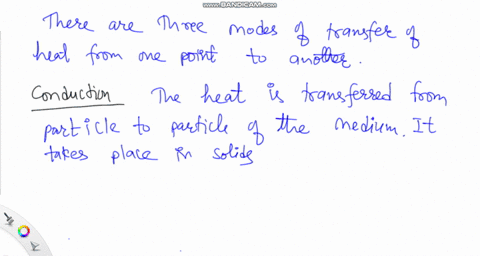 www.BANDICAM.com
There are three modes of transfer of
heat from one point to another.
Conduction The heat is transferred from
particle to particle of the medium. It
takes place in solids